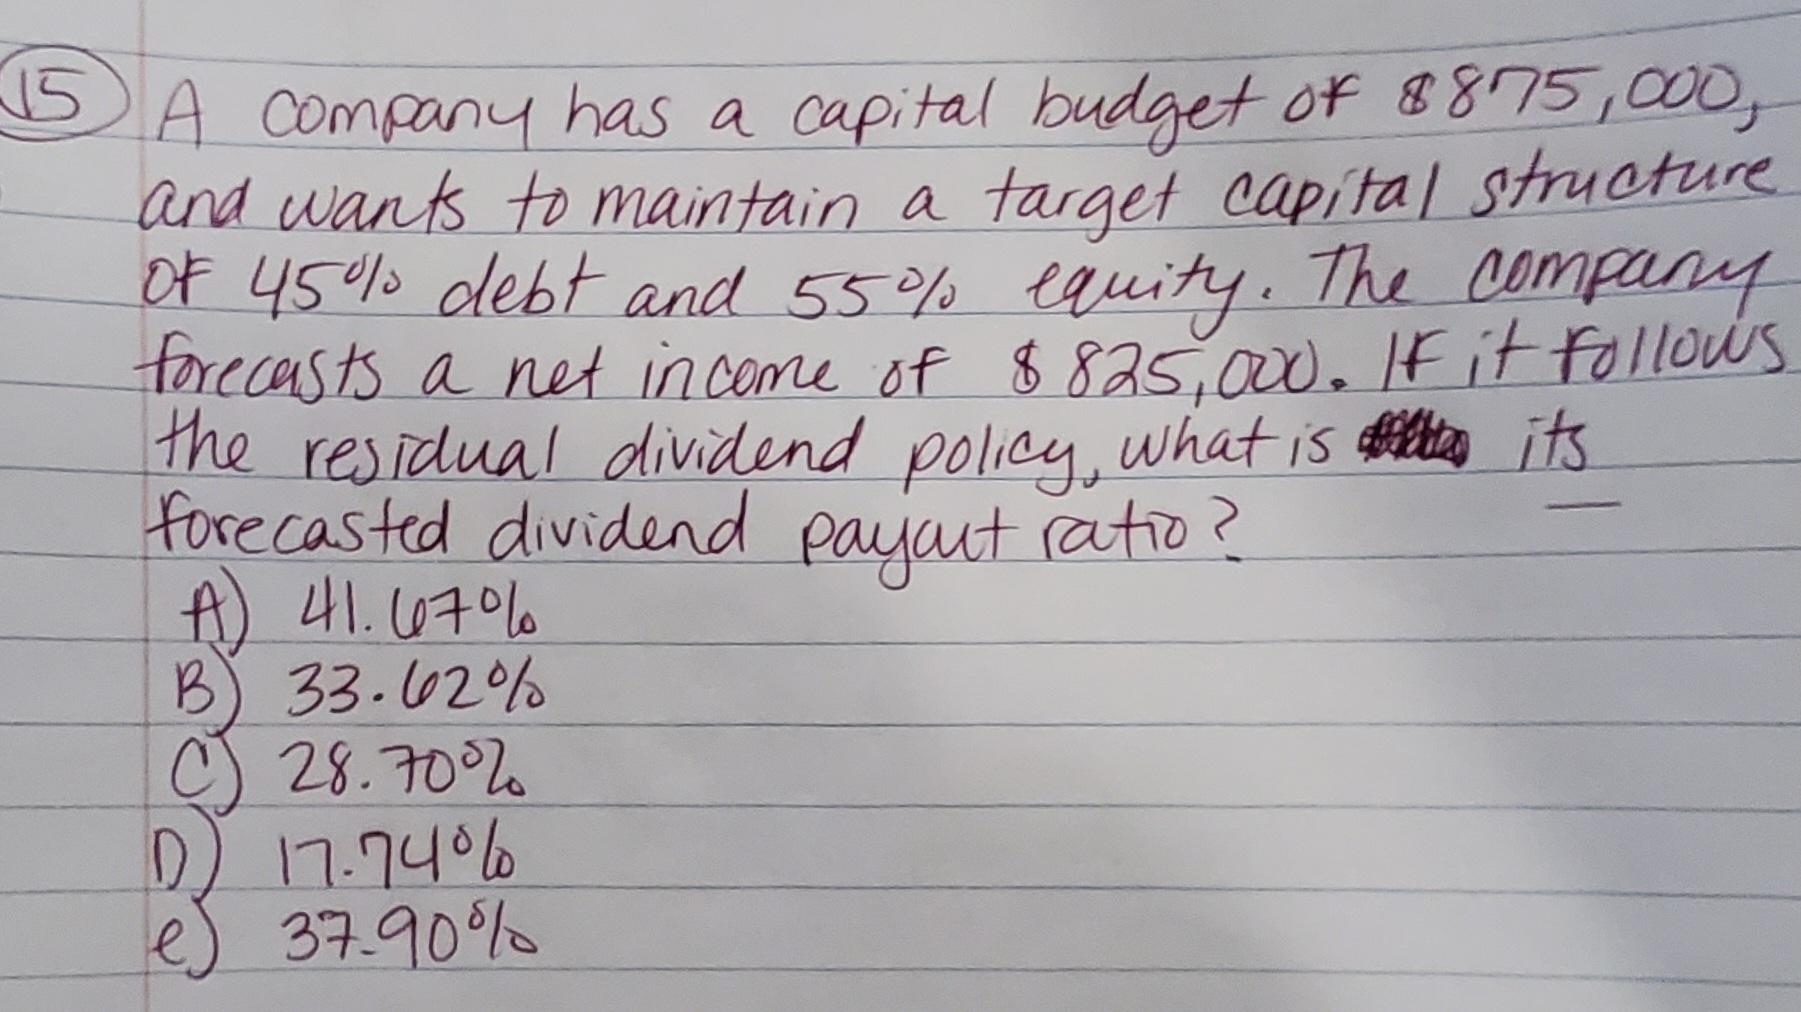 15 A company has a capital budget of $875,000,
and wants to maintain a target capital structure
of 45% debt and 55% equity. The company
forecasts a net income of $825,000. If it follows
the residual dividend policy, what is its
forecasted dividend payout ratio?
A) 41.67%
B) 33.62%
C) 28.70%
D) 17.74%
e) 37.90%